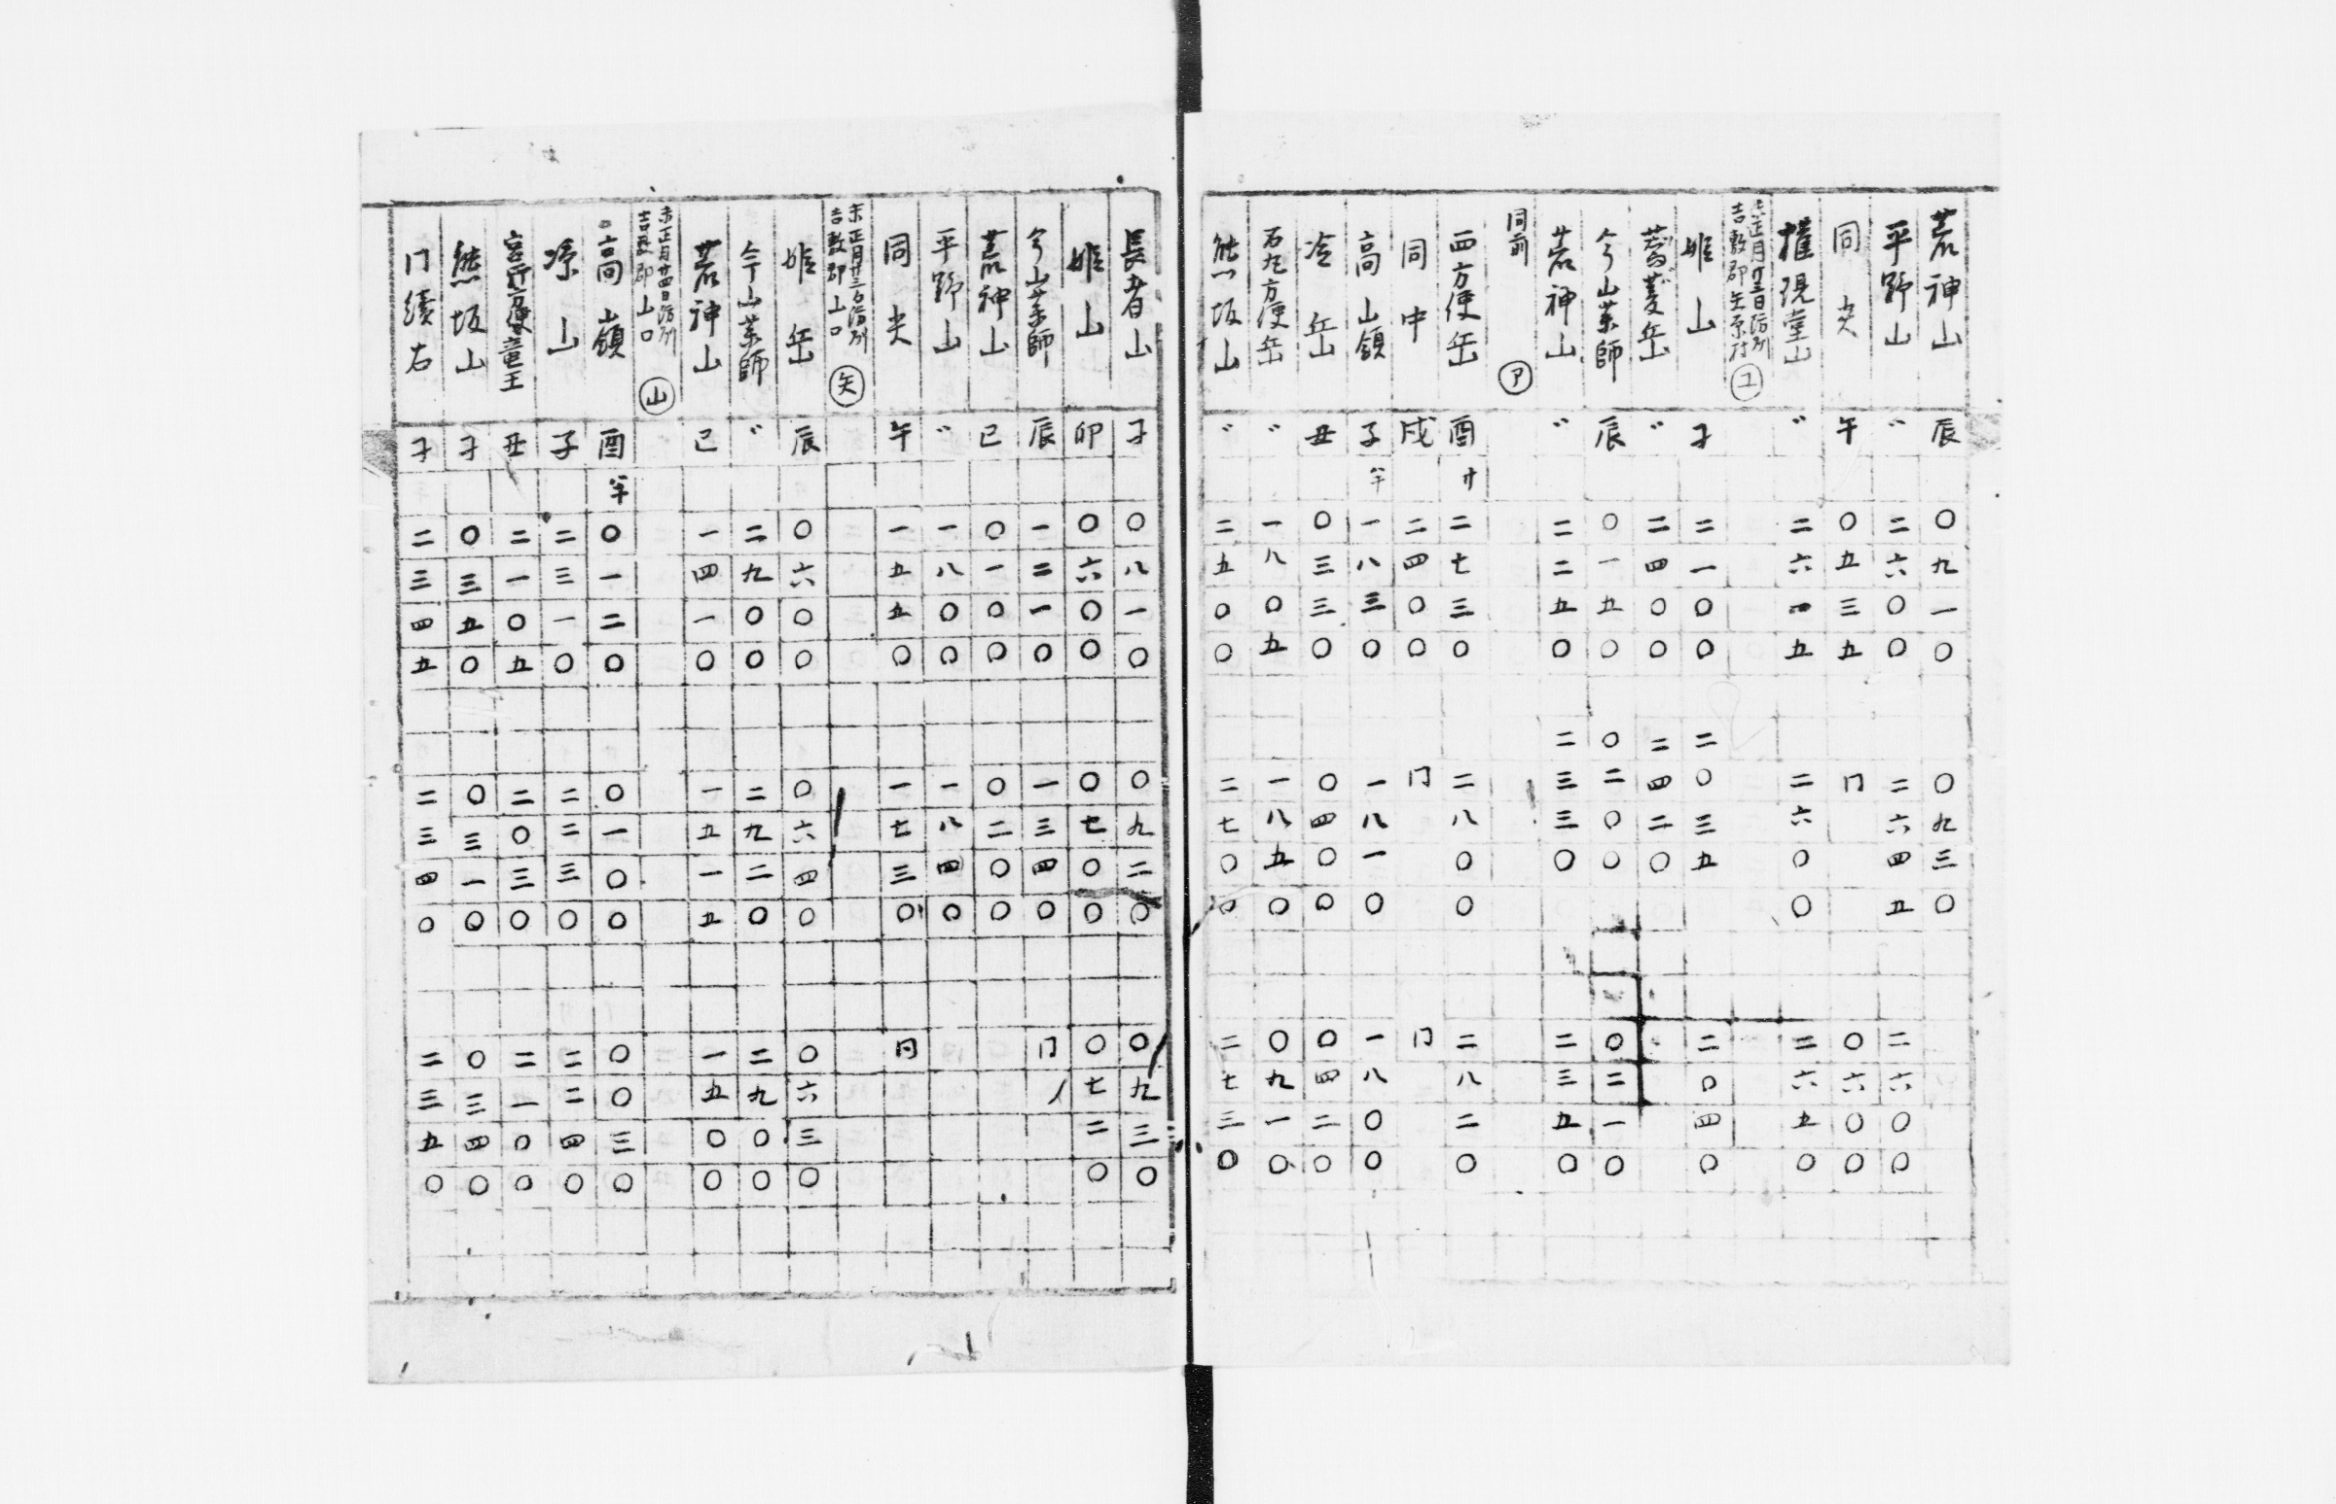 荒神山 辰 〇九一〇 〇九三〇
平野山 〃 二六〇〇 二六四五 二六〇〇
同 尖 午 〇五三五 冂 〇六〇〇
権現堂山 〃 二六四五 二六〇〇 二六五〇
正月廿三日防州
吉敷郡矢原村 ユ
姫山 子 二一〇〇 二〇三五 二〇四〇
蔦菱岳 〃 二四〇〇 二四二〇
今山薬師 辰 〇一五〇 〇二〇〇 〇二一〇
荒神山 〃 二二五〇 二三三〇 二三五〇
同前 ア
四方便岳 酉 廾 二七三〇 二八〇〇 二八二〇
同 中 戌 二四〇〇 冂 冂
高山嶺 子 半 一八三〇 一八一〇 一八〇〇
冷岳 丑 〇三三〇 〇四〇〇 〇四二〇
石九方便岳 〃 一八〇五 一八五〇 〇九一〇
熊坂山 〃 二五〇〇 二七〇〇 二七三〇
長者山 子 〇八一〇 〇九二〇 〇九三〇
姫山 卯 〇六〇〇 〇七〇〇 〇七二〇
今山薬師 辰 一二一〇 一三四〇 冂
荒神山 巳 〇一〇〇 〇二〇〇
平野山 〃 一八〇〇 一八四〇
同 尖 午 一五五〇 一七三〇 同
未正月廿三日防州
吉敷郡山口 矢
姫岳 辰 〇六〇〇 〇六四〇 〇六三〇
今山薬師 〃 二九〇〇 二九二〇 二九〇〇
荒神山 巳 一四一〇 一五一五 一五〇〇
未正月廿四日防州
吉敷郡山口 山
高嶺 酉 半 〇一二〇 〇一〇〇 〇〇三〇
凉山 子 二三一〇 二二三〇 二二四〇
宮野方便竜王 丑 二一〇五 二〇三〇 二一〇〇
熊坂山 子 〇三五〇 〇三一〇 〇三四〇
冂續右 子 二三四五 二三四〇 二三五〇